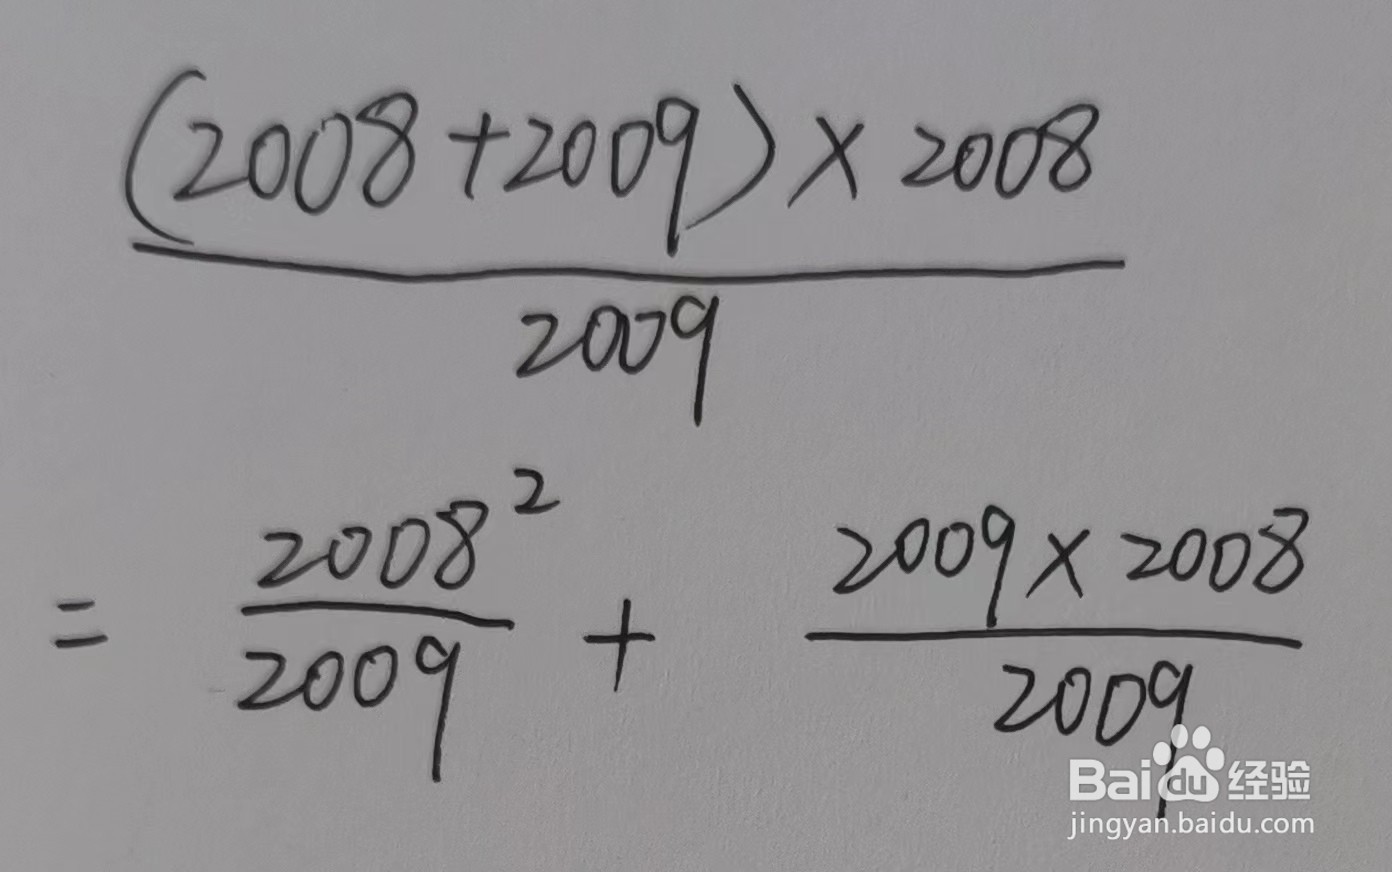 (2008+2009)×2008
2009
= 2008² + 2009×2008
2009 2009
Baidu经验
jingyan.baidu.com